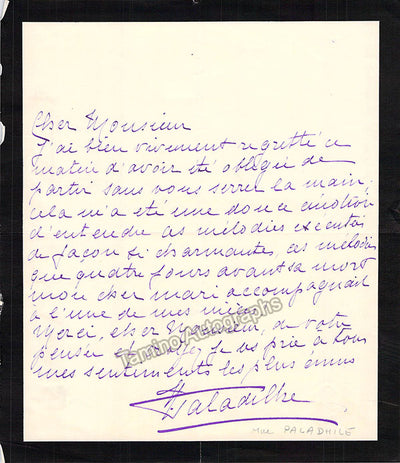 Cher Monsieur
J'ai bien vivement regretté ce
matin d'avoir été obligée de
partir sans vous serrer la main,
cela m'a été une douce émotion
d'entendre ces mélodies exécutées
de façon si charmante, ces mélodies
que quatre jours avant sa mort
mon cher mari accompagnait
à l'une de mes nièces
Merci, cher Monsieur, de votre
pensée et je vous prie à tous
mes sentiments les plus émus
Paladilhe
Mme PALADHILE
Tamino Autographs